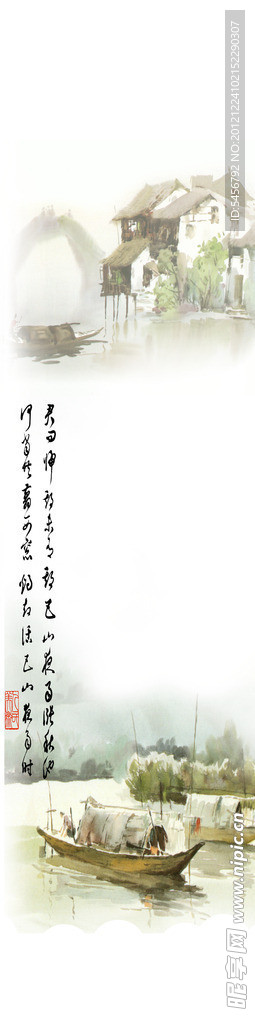 君问归期未有期巴山夜雨涨秋池
何当共剪西窗烛却话巴山夜雨时
ID:5456792 NO:20121224102152290307
昵享网 www.nipic.cn